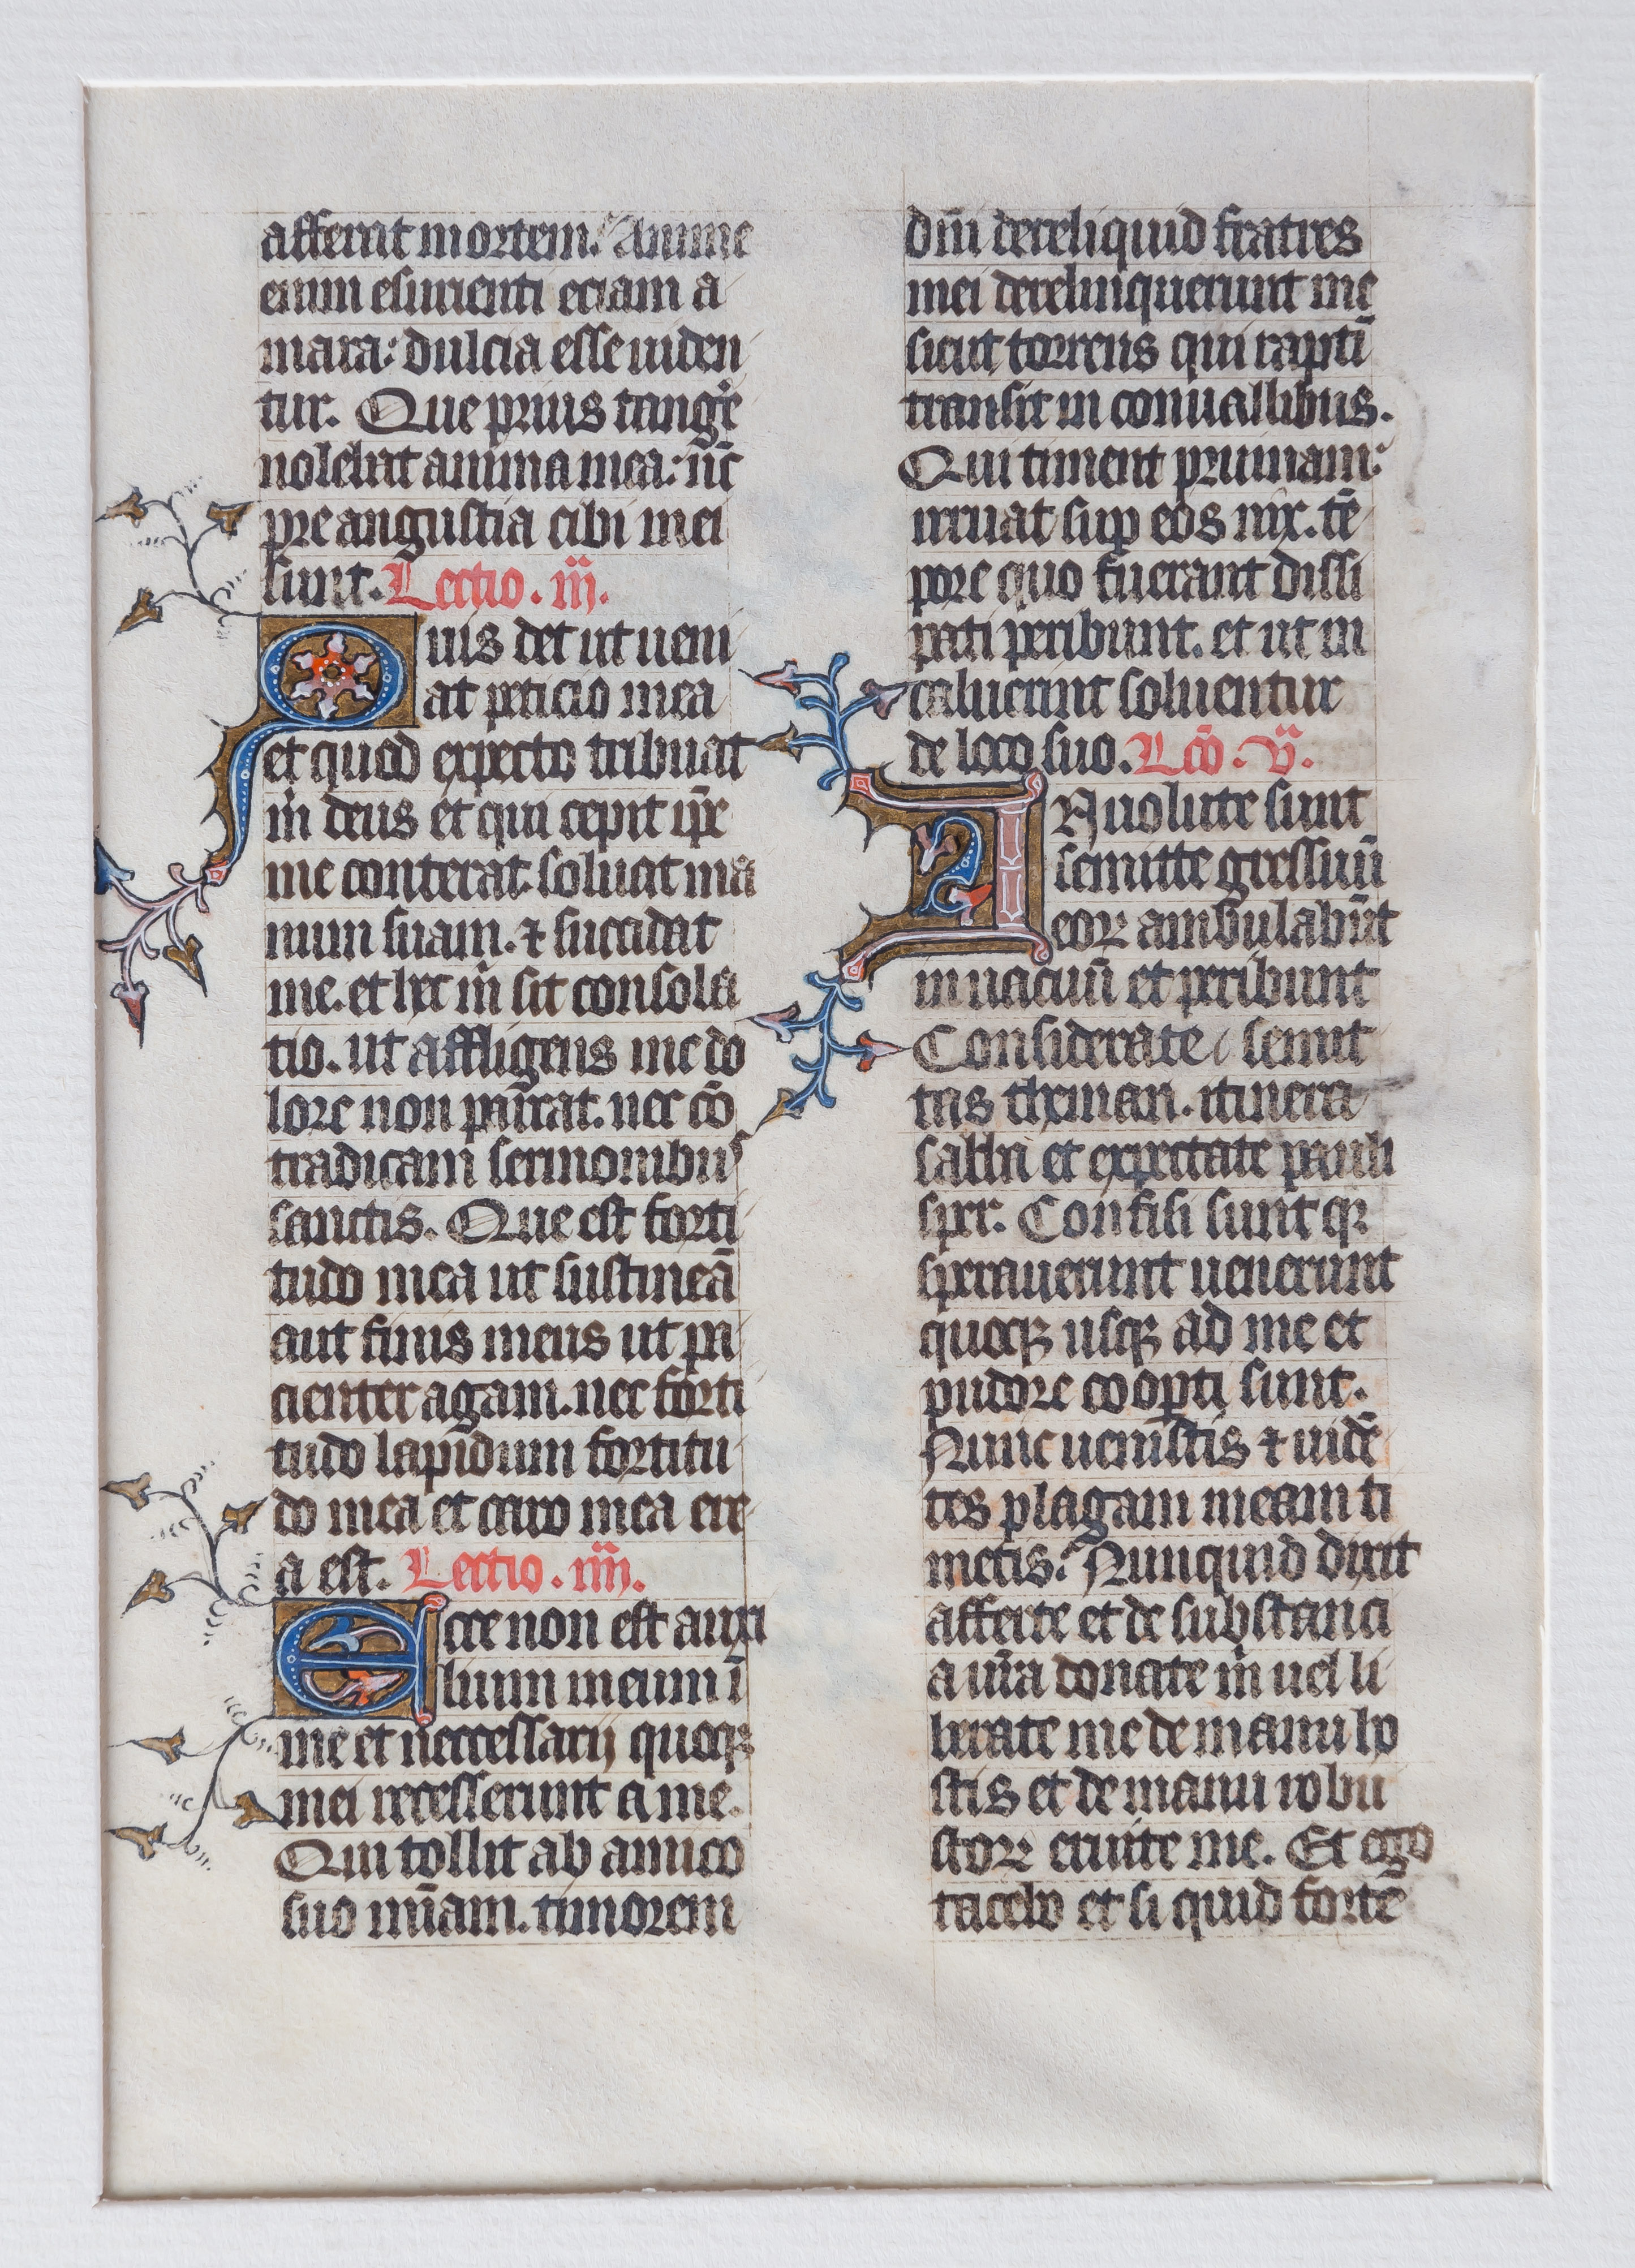 affert mortem. Anime
enim esurienti eciam a
mara: dulcia esse uiden
tur. Que prius tange͛
nolebat anima mea: nc̄
pre angustia cibi mei
sunt. Lectio. iij.
Quis det ut ueni
at peticio mea
et quod expecto tribuat
m̄ deus et qui cepit ip̄e
me conterat. soluat ma
num suam. ⁊ succidat
me. et hec m̄ sit consola
tio. ut affligens me do
lore non parcat. nec cō
tradicam sermonibus
sanctis. Que est forti
tudo mea ut sustineā
aut finis meus ut pa
cienter agam. nec forti
tudo lapidum fortitu
do mea et caro mea ere
a est. Lectio. iiij.
Ecce non est auxi
lium meum ī
me et neccessarij quoqꝫ
mei recesserunt a me.
Qui tollit ab amico
suo mīam. timorem
dm̄ dereliquid fratres
mei derelinquerunt me
sicut torrens qui raptī
transit in conuallibus.
Qui timent pruinam:
irruat sup eos nix. tē
pore quo fuerant dissi
pati peribunt. et ut in
caluerint soluentur
de loco suo. Lcō. v.
INuolute sunt
semitte gressuū
eoꝝ ambulabūt
in uacuū et peribunt
Considerate semit
tas theman. itinera
saba et expectate pauli
sper. Confusi sunt qꝛ
sperauerunt uenerunt
quoqꝫ usqꝫ ad me et
pudore coopti sunt.
Nunc uenistis ⁊ uidē
tes plagam meam ti
metis. Nunquid dixit
afferte et de substanci
a ur̄a donate m̄ uel li
berate me de manu ho
stis et de manu robu
stoꝝ eruite me. Et ego
tacebo et si quid fortē